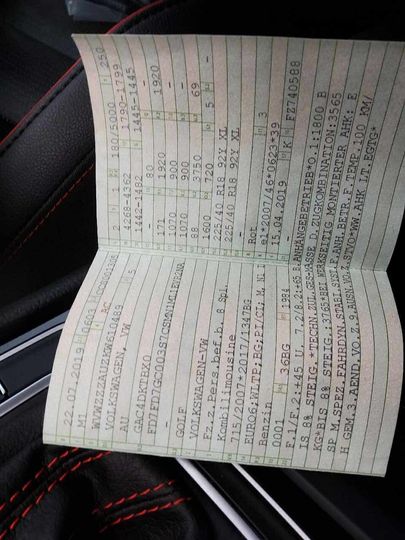 22.07.2019 0603
M1 AC
WVWZZZAUZKW610489
VOLKSWAGEN, VW
AU
GAC4ADKTBX0
FD7FD7GC00397
-
GOLF
VOLKSWAGEN-VW
Fz.z.Pers.bef.b. 8 Spl.
Kombilimousine
715/2007*2017/1347BG
EURO6;WLTP;BG;EI,CI;
Benzin
0001 36BG 1984
2 2 180/5000 250
4268-4382 1790-1799
1442-1482 1445-1445
- 80
171 1920 1920
1070 900
1070 900
88 3750 69
1600 720 5
225/40 R18 92Y XL
225/40 R18 92Y XL
Rot 3
e1*2007/46*0623*39
15.04.2019 K FZ740588
F.1/F.2:+45 U. 7.2/8.2:+65 B.ANHÄNGEBETRIEB*O.1:1800 B
IS 8% STEIG.*TECHN.ZUL.GES.MASSE D.ZUGKOMBINATION:3565
KG*BIS 8% STEIG.:3765*BEI WERKSEITIG MONTIERTER AHK: E
SP M.SPEZ.FAHRDYN.STABI.SYST.F.ANH.BETR.F.TEMP.100 KM/
H GEM.3.AEND.VO.Z.9.AUSN.VO.Z.STVO*WW.AHK LT.EGTG*